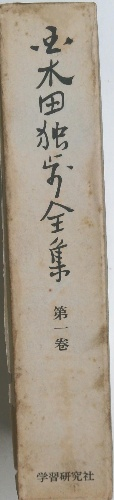 国木田独歩全集
第一巻
学習研究社